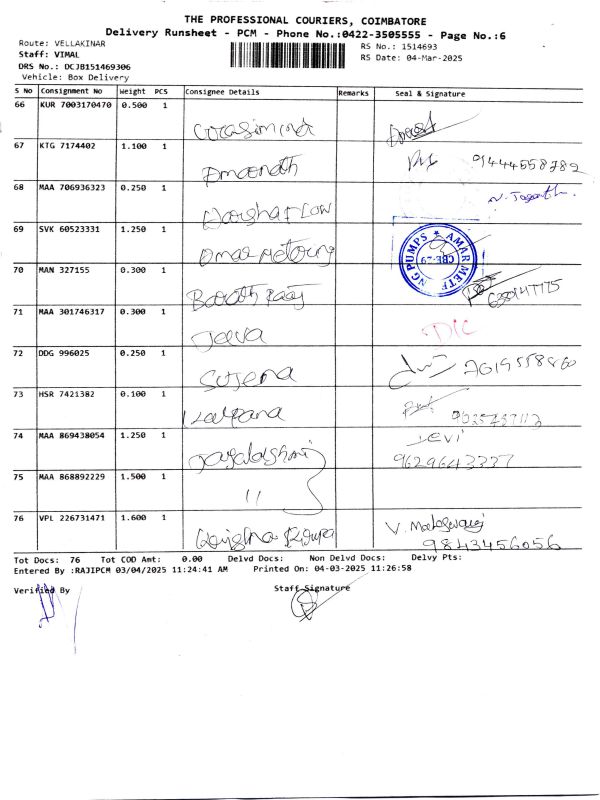 THE PROFESSIONAL COURIERS, COIMBATORE
Delivery Runsheet - PCM - Phone No.:0422-3505555 - Page No.:6
Route: VELLAKINAR
Staff: VIMAL
DRS No.: DCJB151469306
Vehicle: Box Delivery
RS No.: 1514693
RS Date: 04-Mar-2025
S No Consignment No Weight PCS Consignee Details Remarks Seal & Signature
66 KUR 7003170470 0.500 1
67 KTG 7174402 1.100 1
Amarnath 9444558789
68 MAA 706936323 0.250 1
N. Jaganath.
69 SVK 60523331 1.250 1
Amar Metering
AMAR METERING PUMPS CBE-29
70 MAN 327155 0.300 1
Barath Raaj
71 MAA 301746317 0.300 1
Jeeva
72 DDG 996025 0.250 1
Sujena 7619558860
73 HSR 7421382 0.100 1
Kalpana
74 MAA 869438054 1.250 1
Jayalakshmi Devi
9629643337
75 MAA 868892229 1.500 1
"
76 VPL 226731471 1.600 1
V. Maheswari
9843456056
Tot Docs: 76 Tot COD Amt: 0.00 Delvd Docs: Non Delvd Docs: Delvy Pts:
Entered By :RAJIPCM 03/04/2025 11:24:41 AM Printed On: 04-03-2025 11:26:58
Verified By Staff Signature